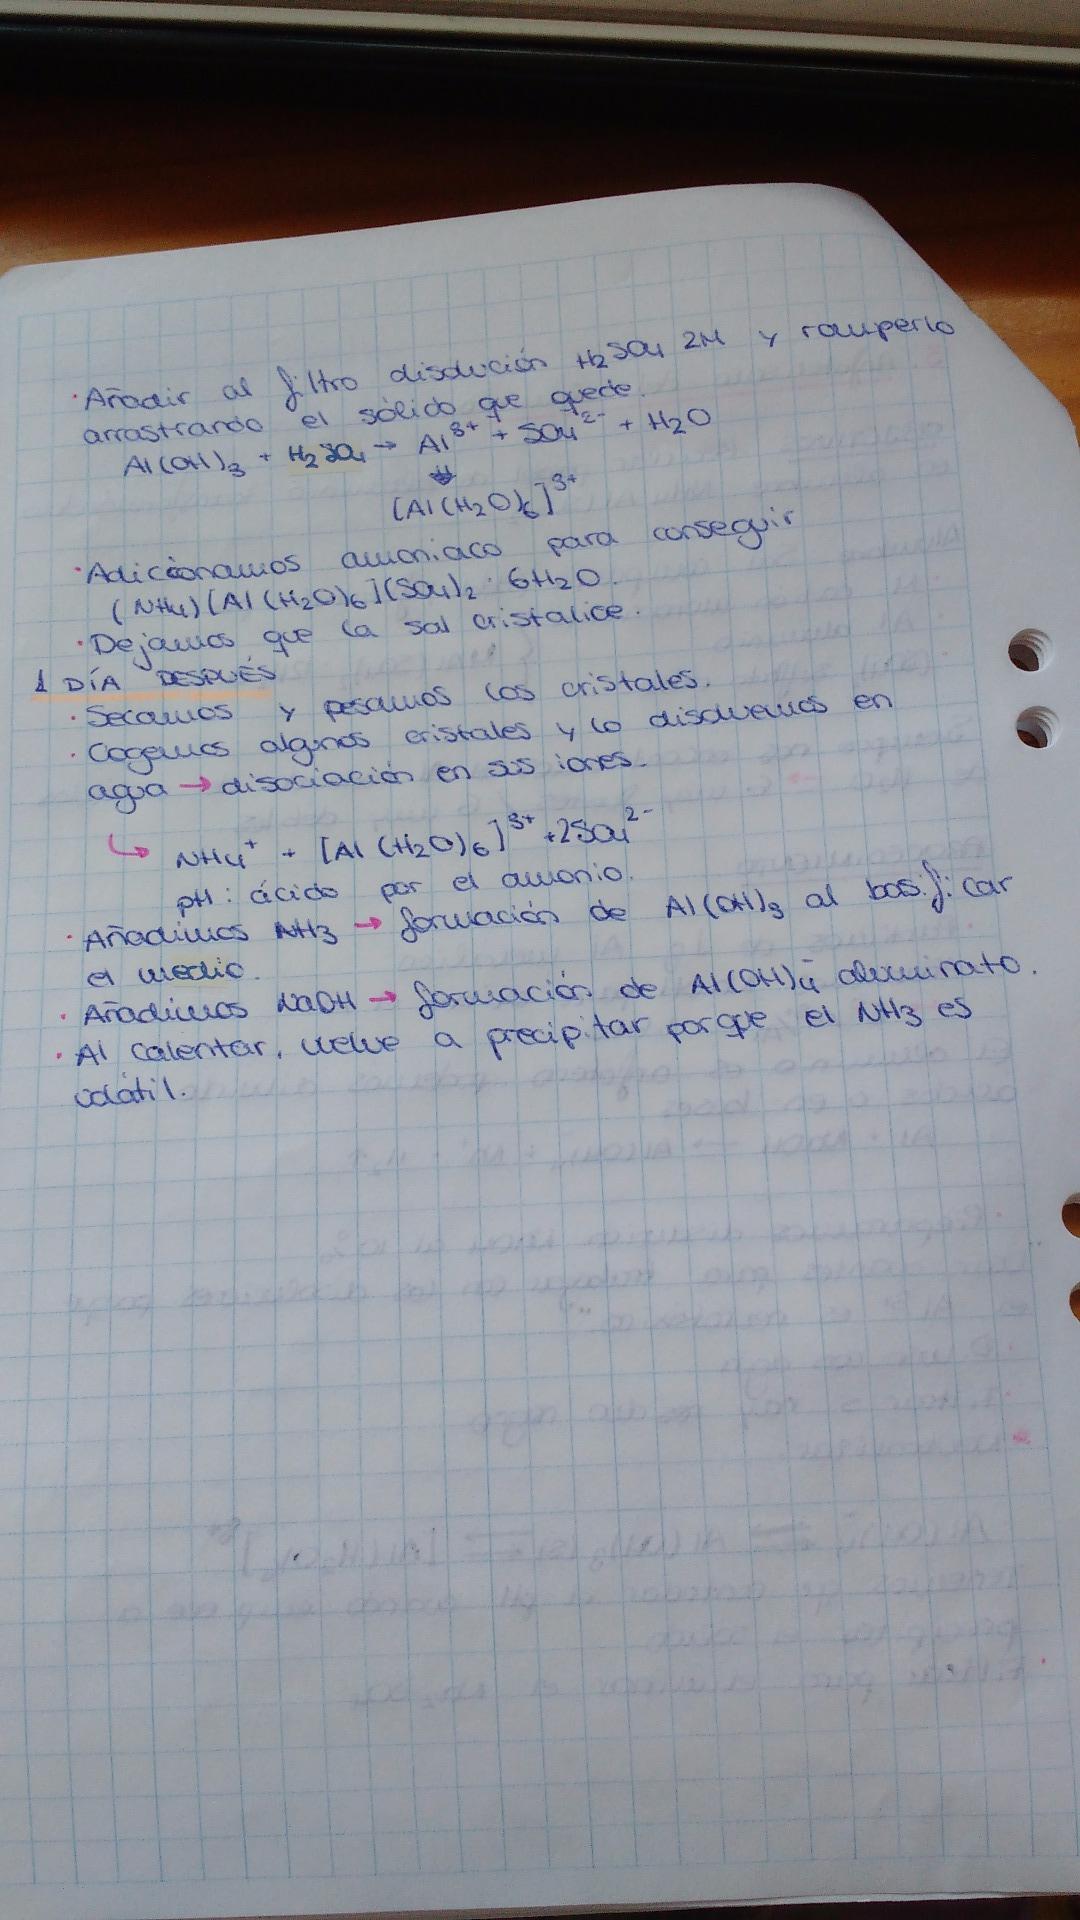 · Añadir al filtro disolución H₂SO₄ 2M y romperlo
arrastrando el sólido que quede.
Al(OH)₃ + H₂SO₄ → Al³⁺ + SO₄²⁻ + H₂O
⇓
[Al(H₂O)₆]³⁺
· Adicionamos amoniaco para conseguir
(NH₄)[Al(H₂O)₆](SO₄)₂ · 6H₂O.
· Dejamos que la sal cristalice.
1 DÍA DESPUÉS
· Secamos y pesamos los cristales.
· Cogemos algunos cristales y lo disolvemos en
agua → disociación en sus iones.
↳ NH₄⁺ + [Al(H₂O)₆]³⁺ + 2SO₄²⁻
pH: ácido por el amonio.
· Añadimos NH₃ → formación de Al(OH)₃ al basificar
el medio.
· Añadimos NaOH → formación de Al(OH)₄⁻ aluminato.
· Al calentar, vuelve a precipitar porque el NH₃ es
volátil.